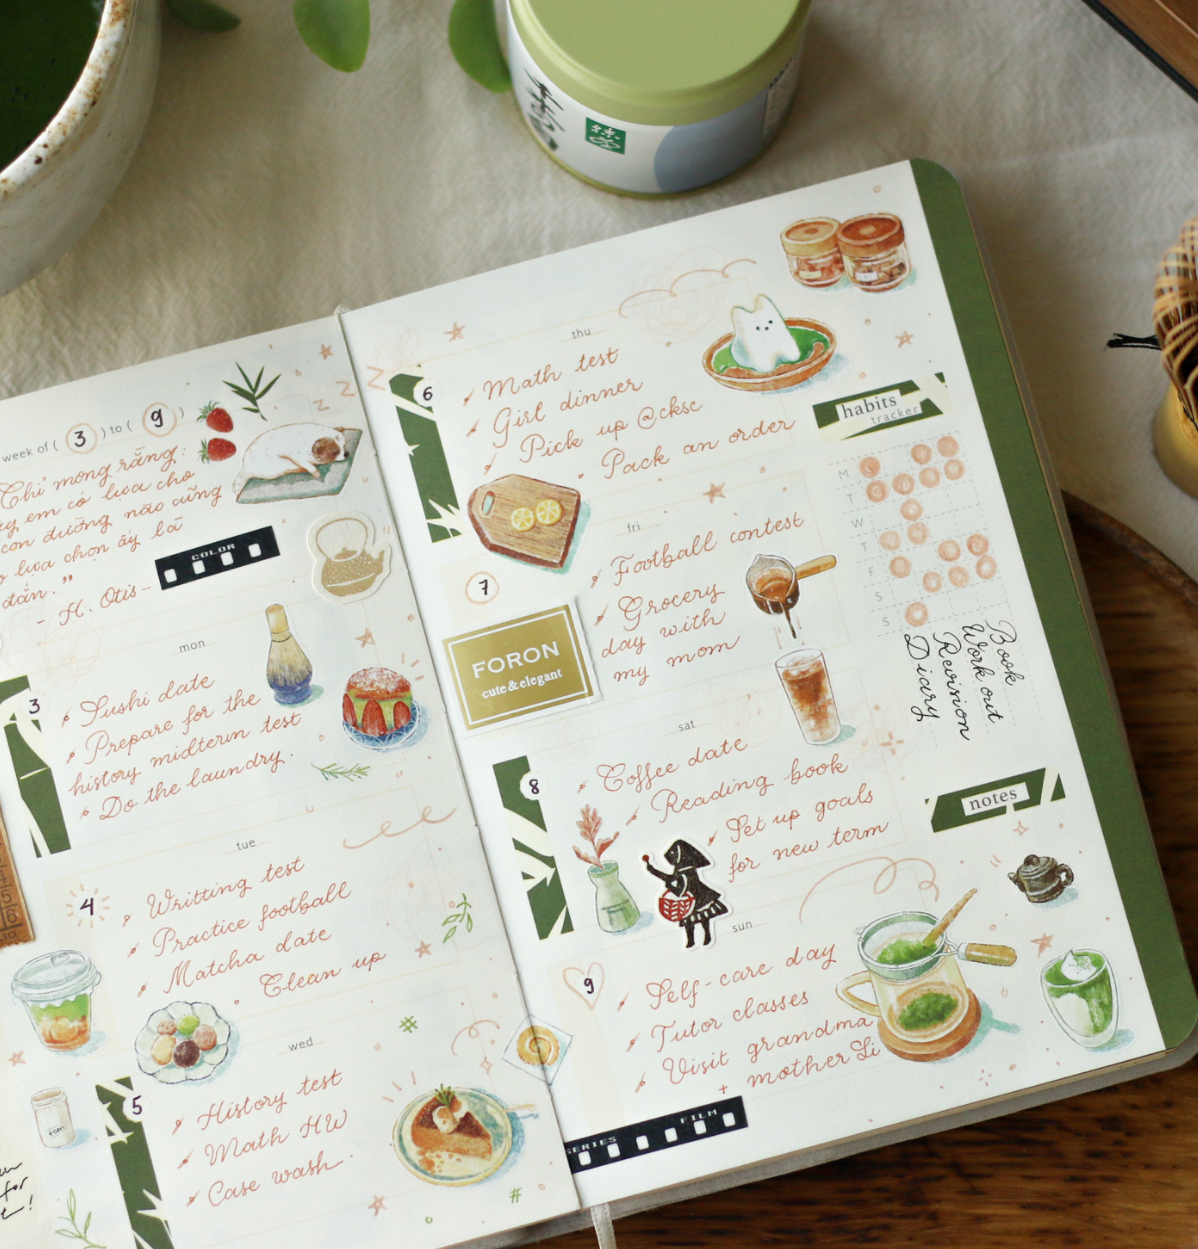 week of ( 3 ) to ( 9 )
Chỉ mong rằng:
em có lựa chọ
con đường nào cũng
lựa chọn ấy là
đắn."
- H. Otis -
COLOR
mon
3
Sushi date
Prepare for the
history midterm test
Do the laundry.
tue
4
Writting test
Practice football
Matcha date
Clean up
wed
5
History test
Math HW
Case wash.
for
thu
6
Math test
Girl dinner
Pick up @cksc
Pack an order
fri
7
Football contest
Grocery
day with
my mom
FORON
cute & elegant
sat
8
Coffee date
Reading book
Set up goals
for new term
sun
9
Self-care day
Tutor classes
Visit grandma
+ mother Li
SERIES FILM
habits
tracker
M
T
W
T
F
S
S
Book
Work out
Revision
Diary
notes